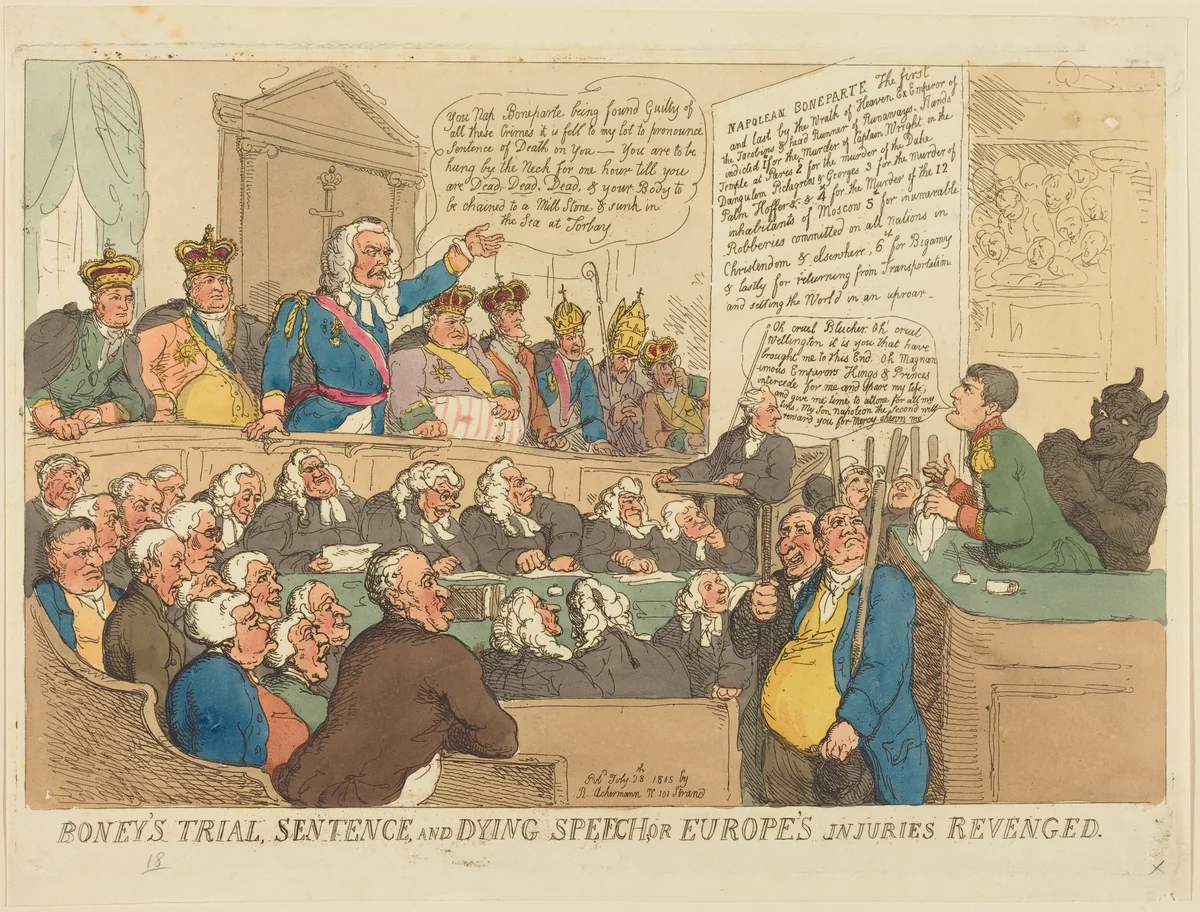 You Nap Boneparte being found Guilty of
all these Crimes it is fell to my lot to pronounce
Sentence of Death on You — You are to be
hung by the Neck for one hour till you
are Dead, Dead, Dead, & your Body to
be chained to a Mill Stone & sunk in
the Sea at Torbay
NAPOLEAN BONEPARTE The first
and last by the Wrath of Heaven Ex Emperor of
the Jacobins & head Runner of Runaways. Stands
indicted 1st for the Murder of Captain Wright in the
Temple at Paris 2 for the murder of the Duke
Dangulem Pichegrew & Georges 3 for the Murder of
Palm Hoffer &c & 4th for the Murder of the 12
inhabitants of Moscow 5th for inumerable
Robberies committed on all Nations in
Christendom & elsewhere, 6th for Bigamy
& lastly for returning from Transportation
and setting the World in an uproar –
Oh cruel Blucher. Oh' cruel
Wellington it is you that have
brought me to this End. Oh Magnan
imous Emperors Kings & Princes
intercede for me and spare my life,
and give me time to attone for all my
Sins, My Son Napoleon the Second will
reward you for Mercy shewn me
Pub July 28th 1815 by
R. Ackermann No 101 Strand
BONEY'S TRIAL, SENTENCE, AND DYING SPEECH, OR EUROPE'S INJURIES REVENGED.
18
x